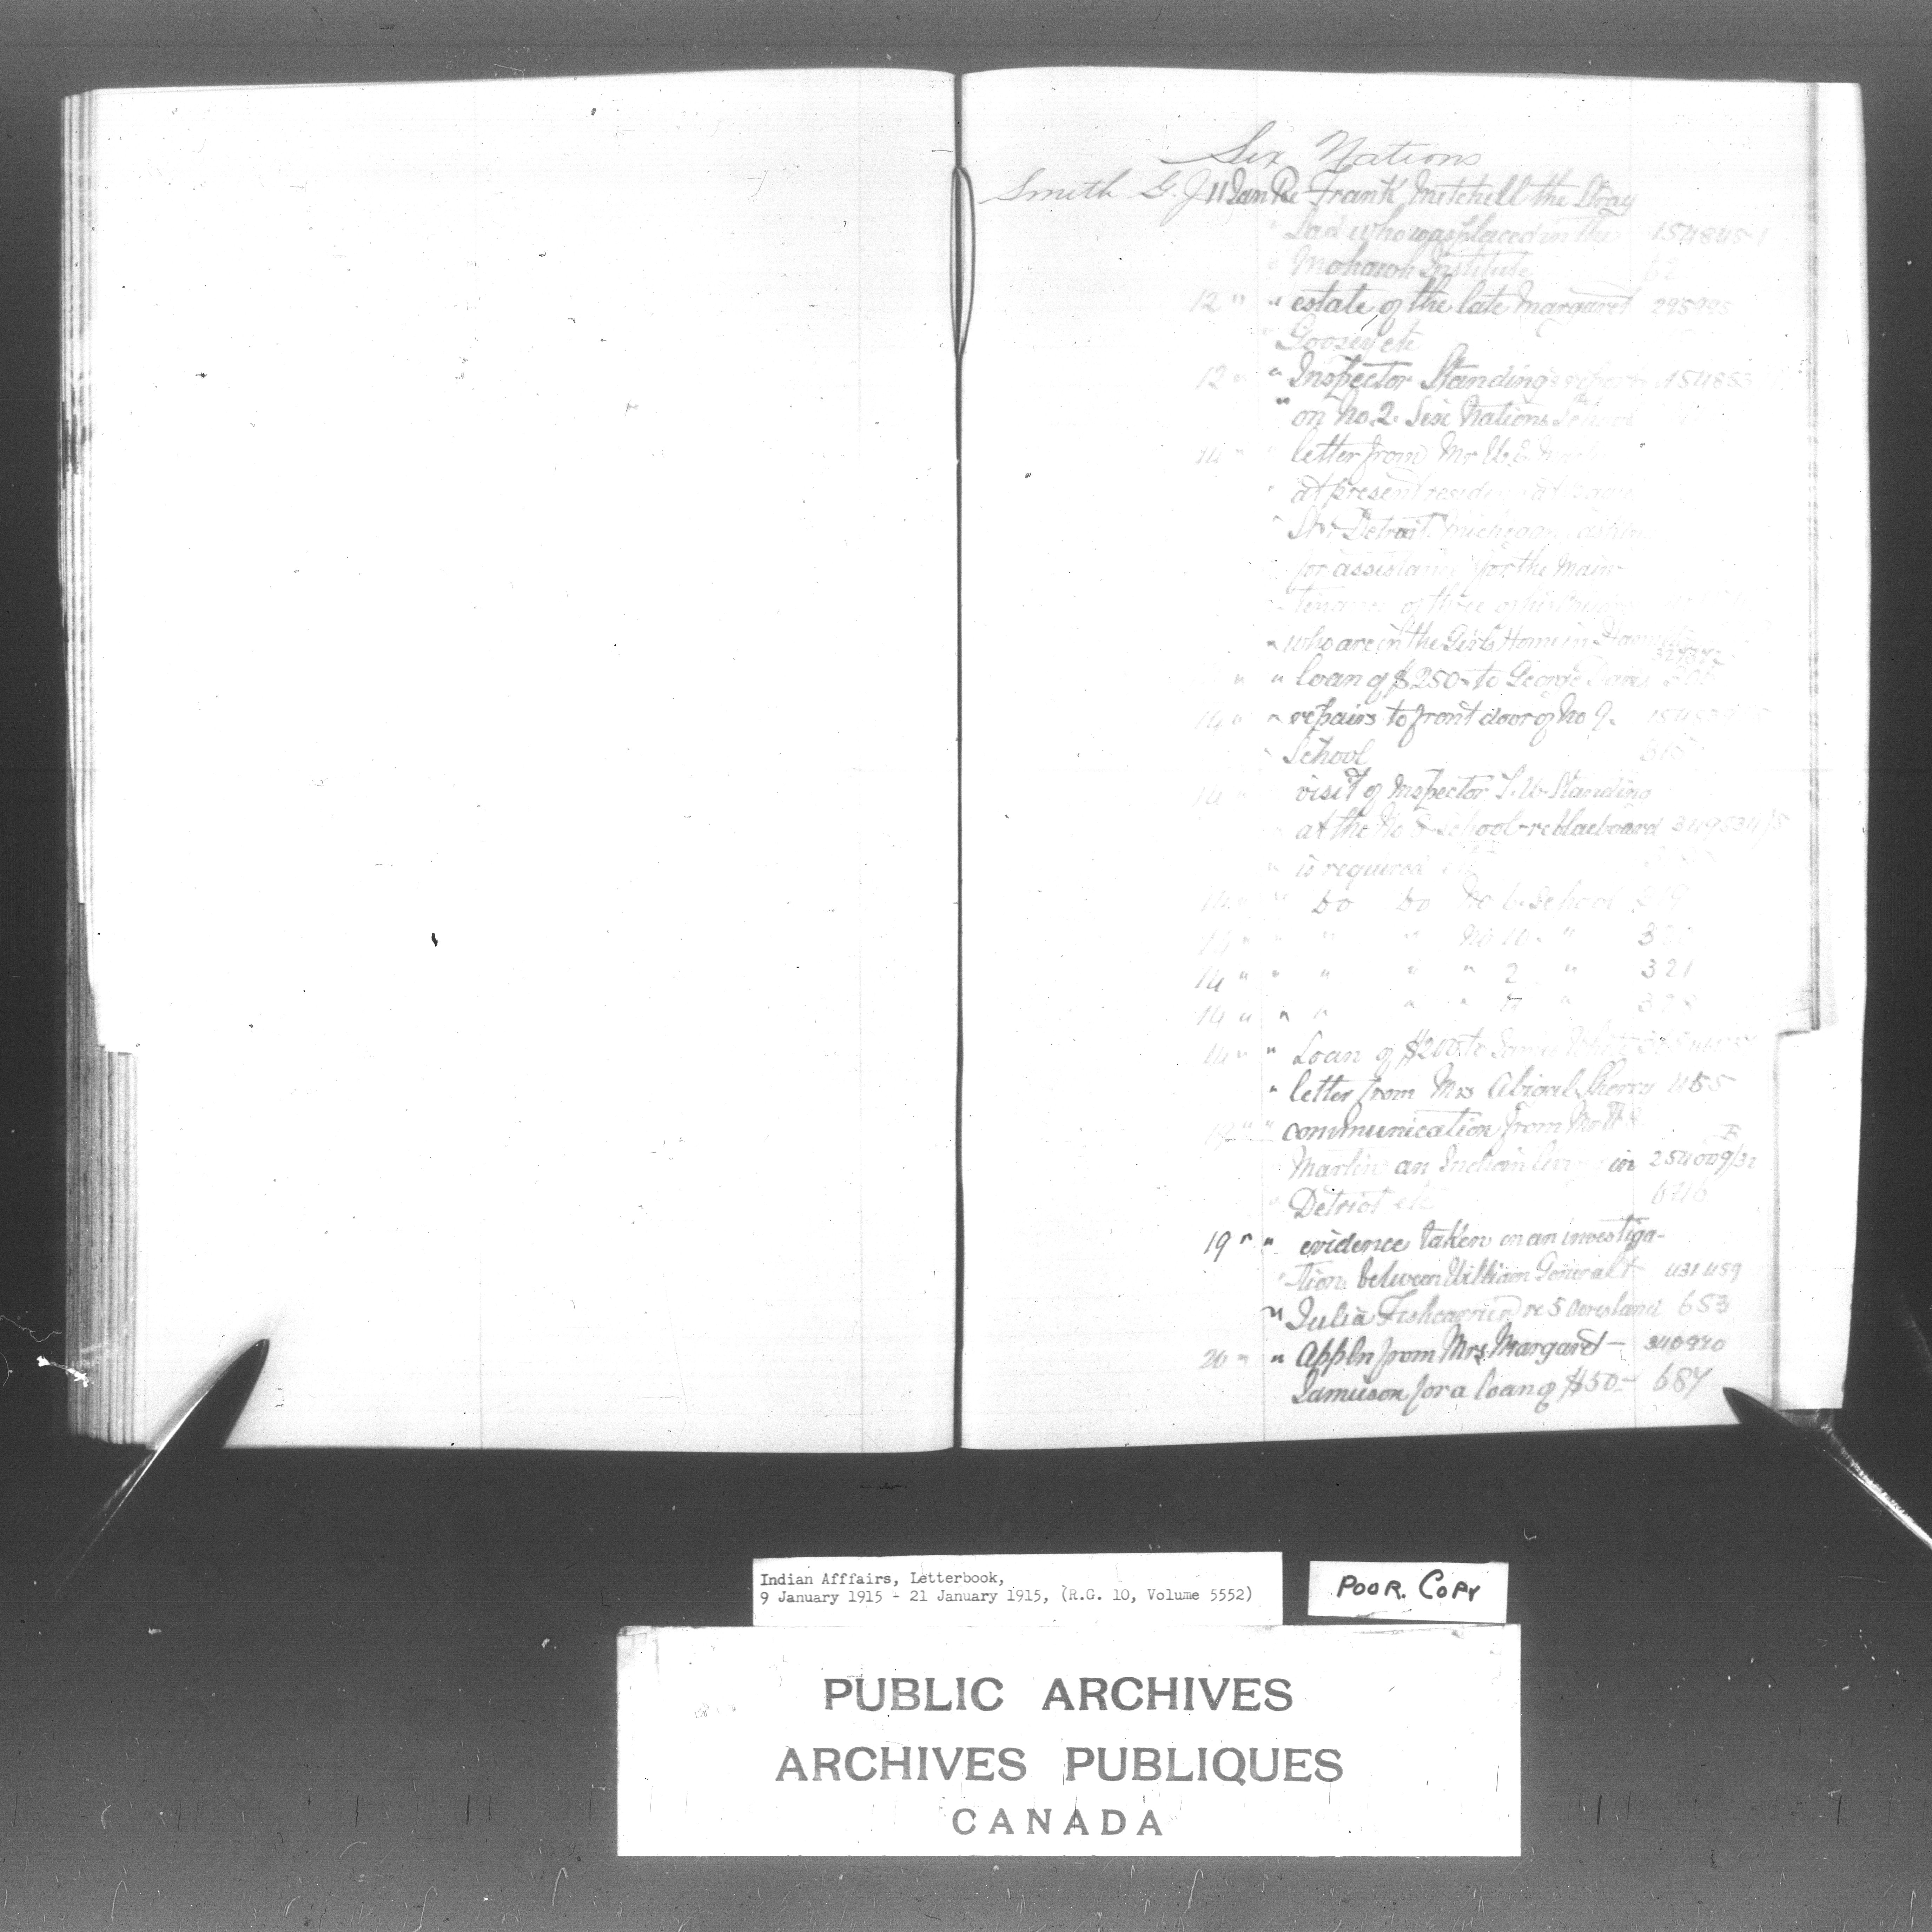 Six Nations
Smith G. J 11 Jan Re Frank Mitchell the Stray
" Lad who was placed in the 154845-1
" Mohawk Institute 62
12 " " estate of the late Margaret 295995
Goosey etc
12 " " Inspector Standing's report 154853
" on No. 2. Six Nations School
14 " " letter from Mr
" at present residing at
" St. Detroit Michigan asking
for assistance for the main-
-tenance of three of his
" who are in the Girls Home in
" " loan of $250 - to George Davis
14 " " repairs to front door of No 9.
" School 315
14 " visit of Inspector T. W. Standing
at the No School - re blacboard
" is required etc
14 " " Do Do No 6. School 319
14 " " " " No 10. "
14 " " " " " 2 " 321
14 " " " " " "
14 " " Loan of $200 to James
" letter from Mrs Abigal Sherry 455
19 " " communication from Mr
Martin an Indian living in 254009/32
" Detriot etc 646
19 " " evidence taken in an investiga-
" -tion between William General & 431459
" Julia Fishcarrier re 5 acres land 653
20 " " Appln from Mrs. Margaret - 340920
Jamieson for a loan of $50 - 687
Indian Afffairs, Letterbook,
9 January 1915 - 21 January 1915, (R.G. 10, Volume 5552)
POOR. COPY
PUBLIC ARCHIVES
ARCHIVES PUBLIQUES
CANADA